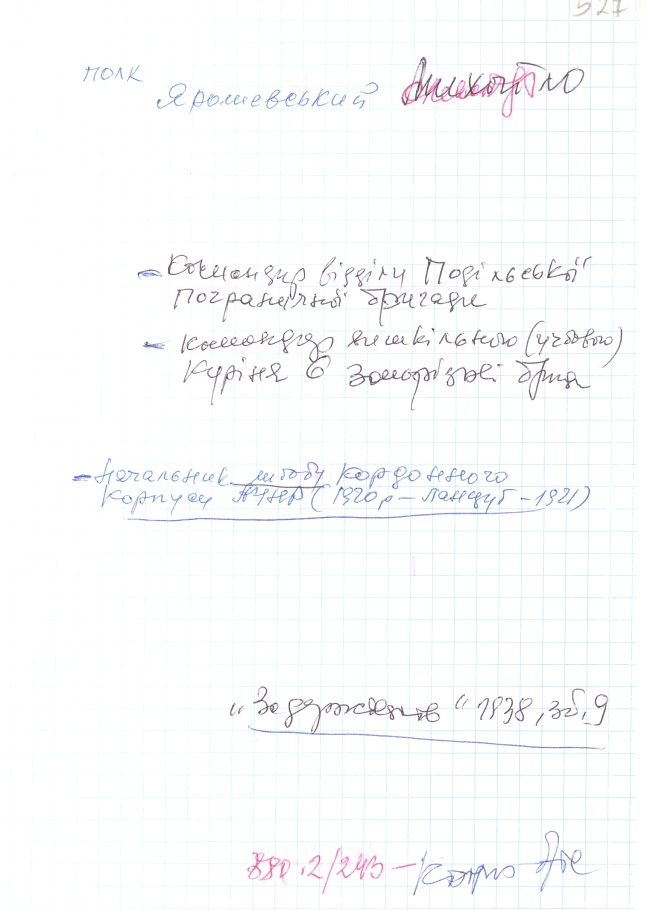 527
полк
Ярошевський
- Командир відділу Подільської
Пограничної бригади
- командир вишкільного (учбового)
Куріня 6 Запорізької бриг
- начальник штабу Кордонного
Корпусу АУНР (1920 р - Ланцут - 1921)
„За державність“ 1938, зб. 9